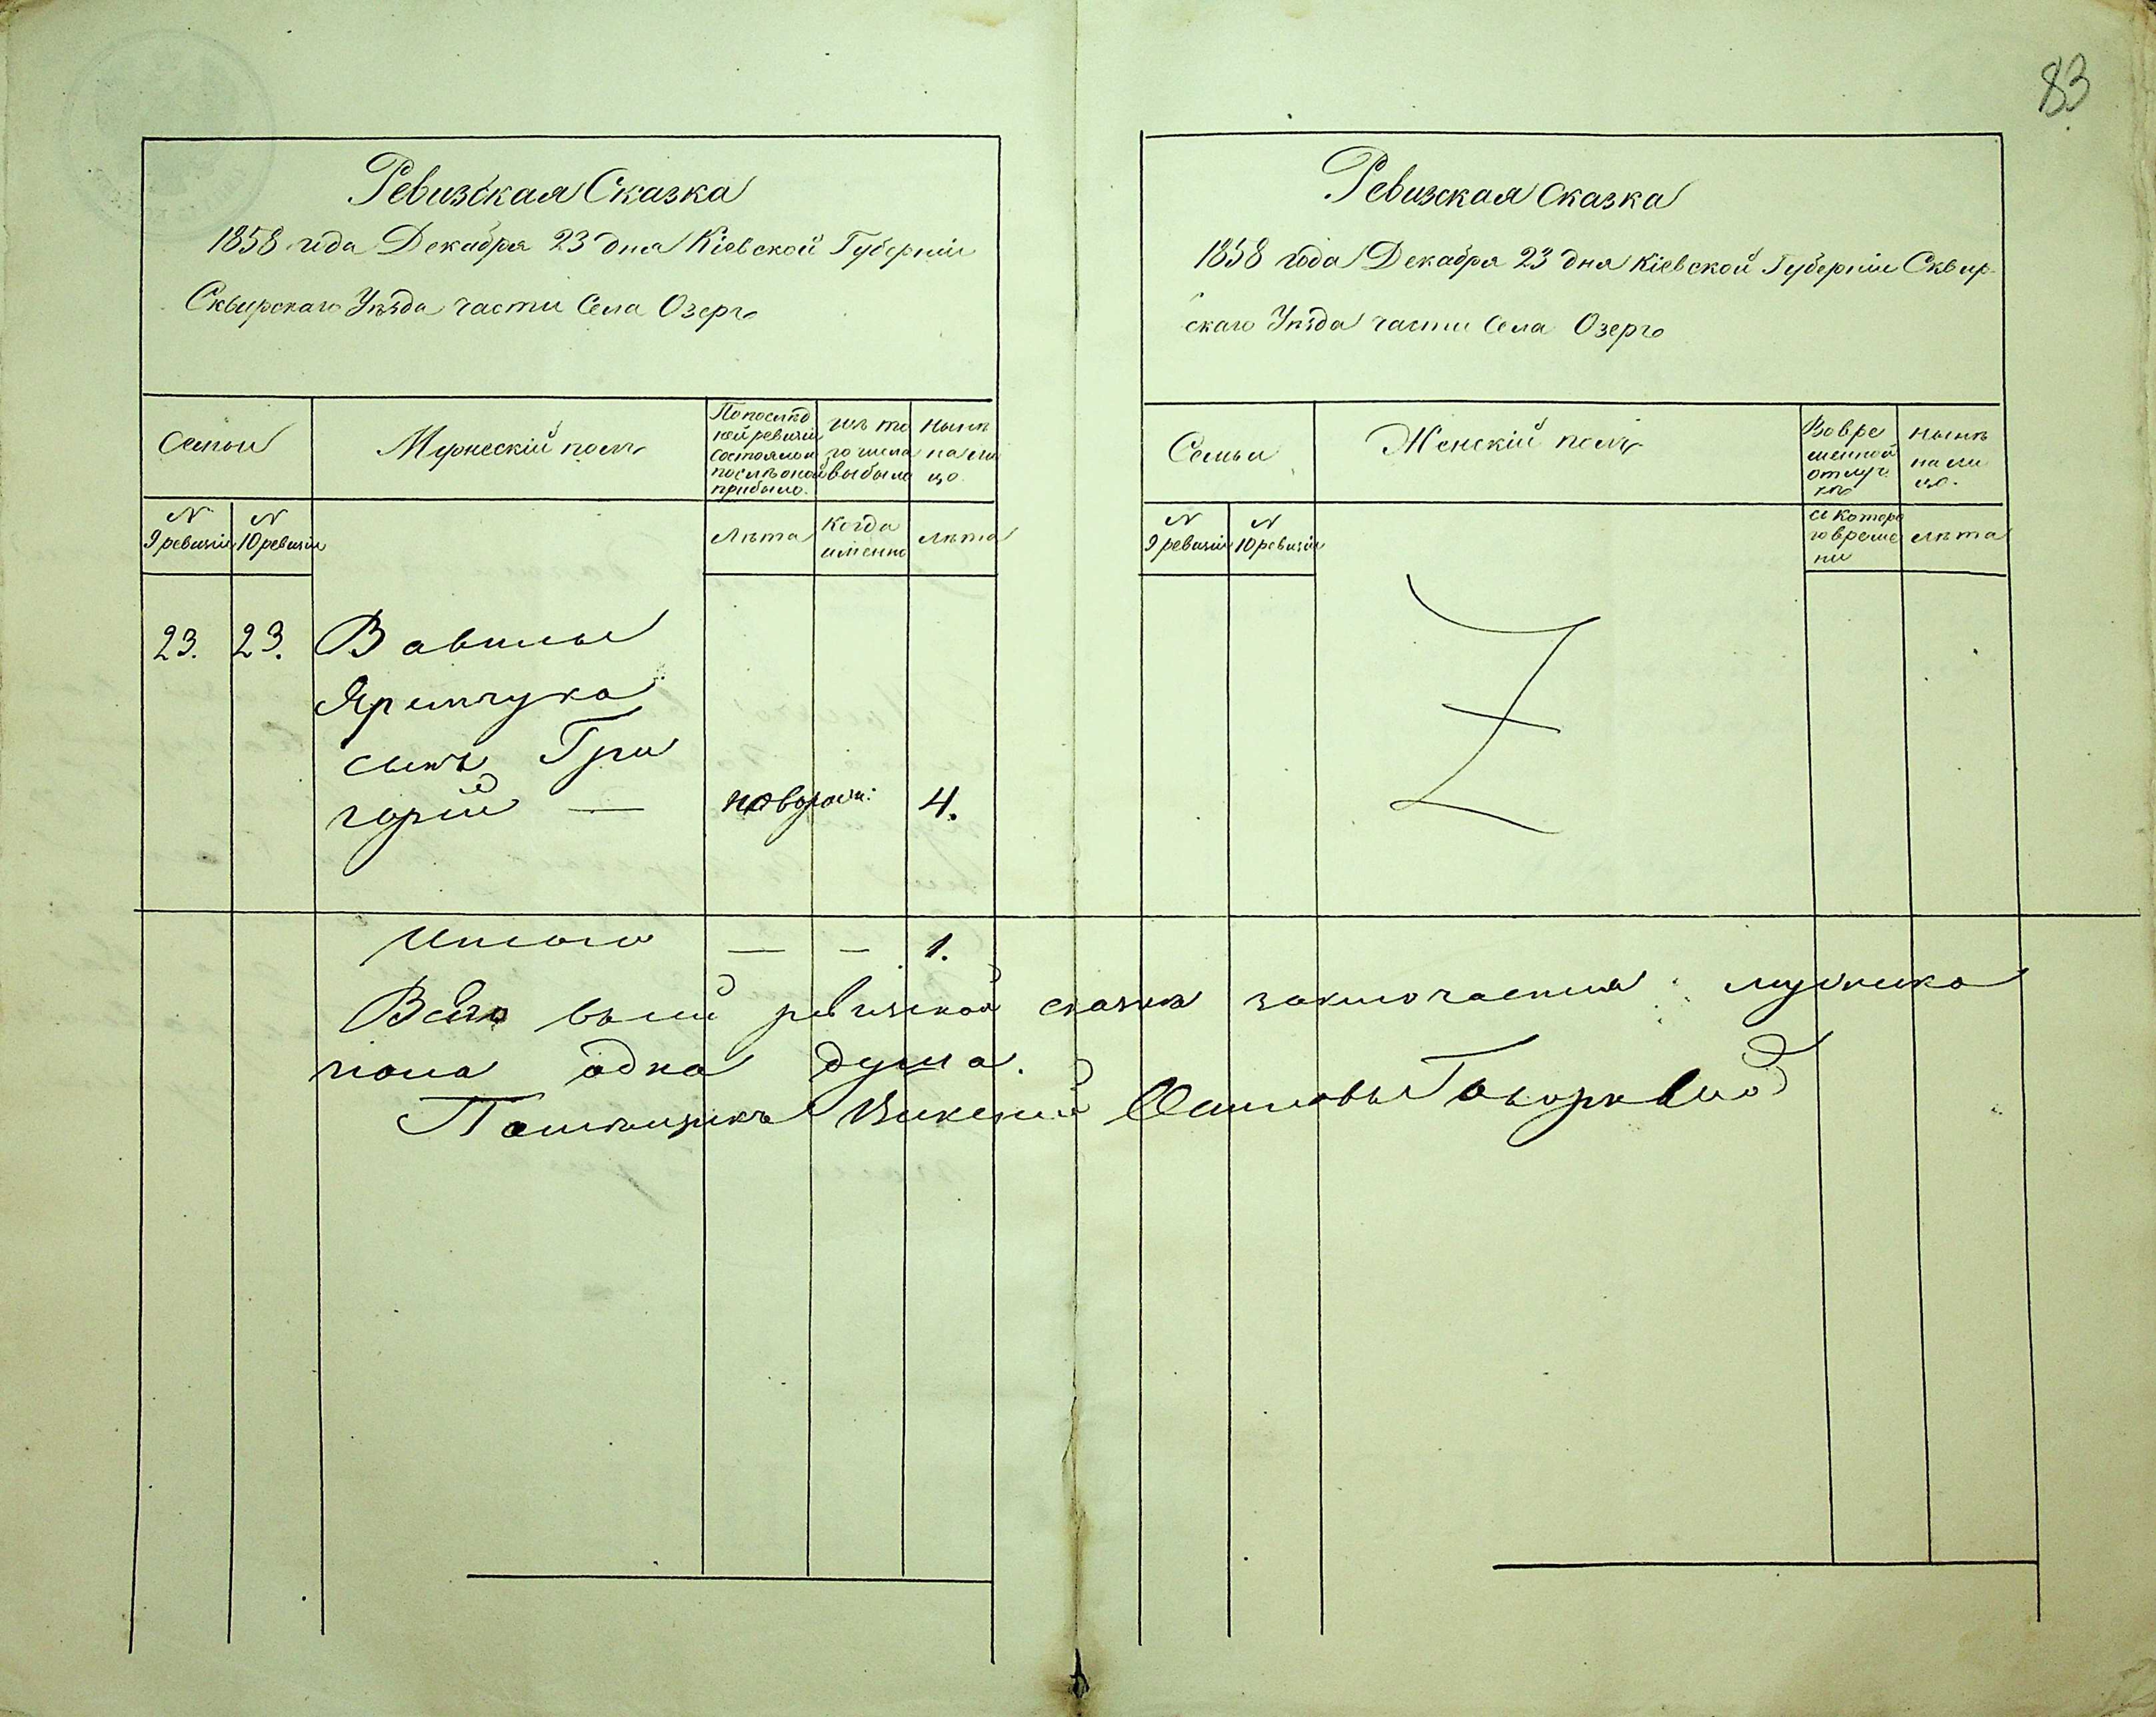 83
Ревизская Сказка
1858 года Декабря 23 дня Кіевской Губерніи
Сквирскаго Уѣзда части Села Озеръ
Семьи
Мужескій полъ
По послѣд
ней ревизіи
состояло и
послѣ оной
прибыло.
изъ то
го числа
выбыло
нынѣ
на ли
цо
N
9 ревизіи
N
10 ревизіи
Лѣта
Когда
именно
лѣта
23. 23. Вавилы
Яремчука
сынъ Гри
горій — новорож: 4.
Итого — — 1.
Ревизская Сказка
1858 года Декабря 23 дня Кіевской Губерніи Сквир-
скаго Уѣзда части Села Озеръ
Семьи
Женскій полъ
Во вре
менной
отлуч
кѣ
нынѣ
на ли
цо.
N
9 ревизіи
N
10 ревизіи
съ которо
го време
ни
лѣта
Всего въ сей ревизской сказкѣ заключается мужеска
пола одна душа.
Помѣщикъ Викентій